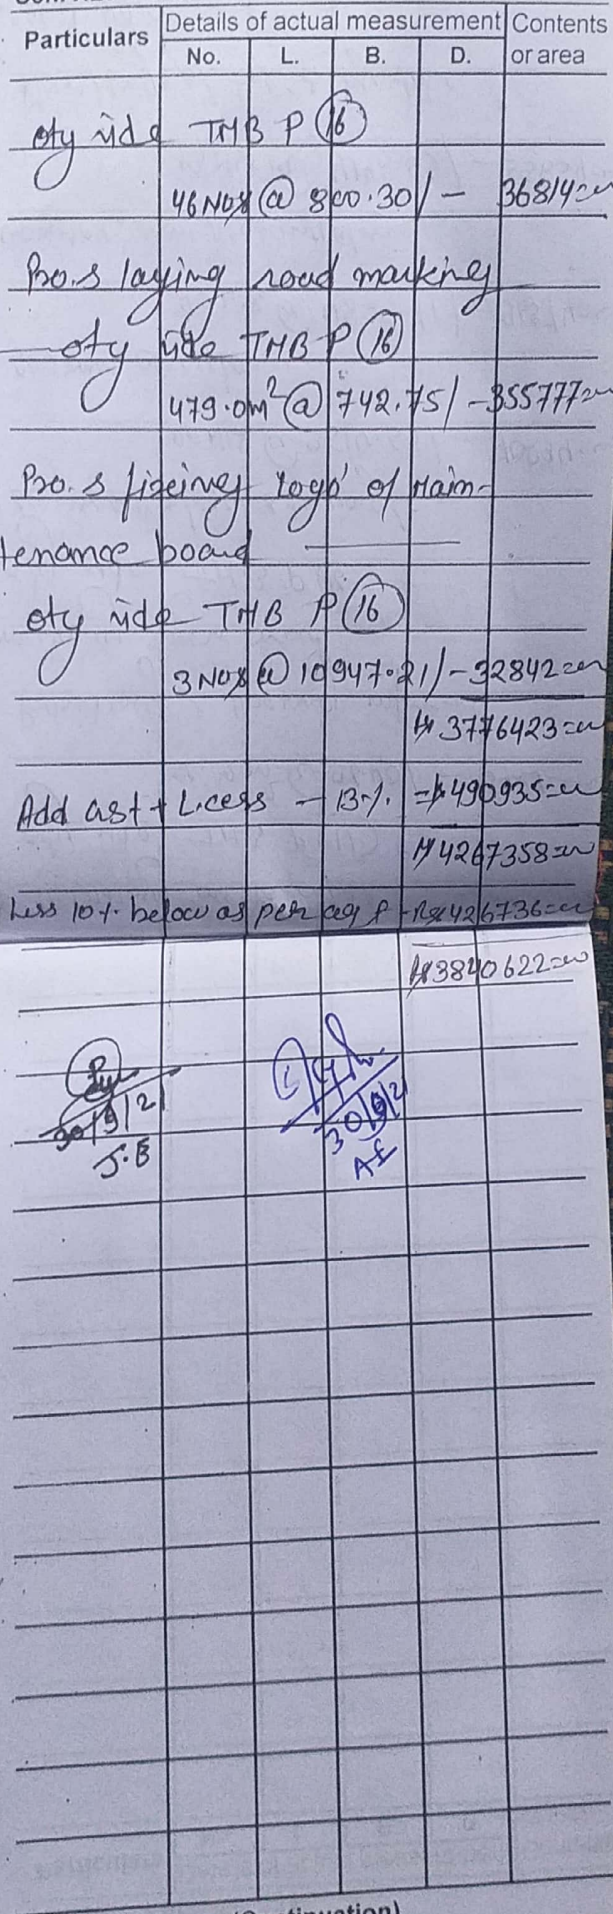 Particulars Details of actual measurement Contents or area
No. L. B. D.
Qty vide TMB P (16)
46 Nos @ 800.30/- 36814=00
Pro. s laying road marking
Qty vide TMB P (16)
479.0m² @ 742.75/- 355777=00
Pro. s fixeing logo of Main-
tenance board
Qty vide TMB P (16)
3 Nos @ 10947.21/- 32842=00
Rs 3776423=00
Add Gst + L.cess - 13%. =Rs 490935=00
Rs 4267358=00
Less 10%. below as per ag P - Rs 426736=00
Rs 3840622=00
30/9/21
J.E
30/9/21
AE